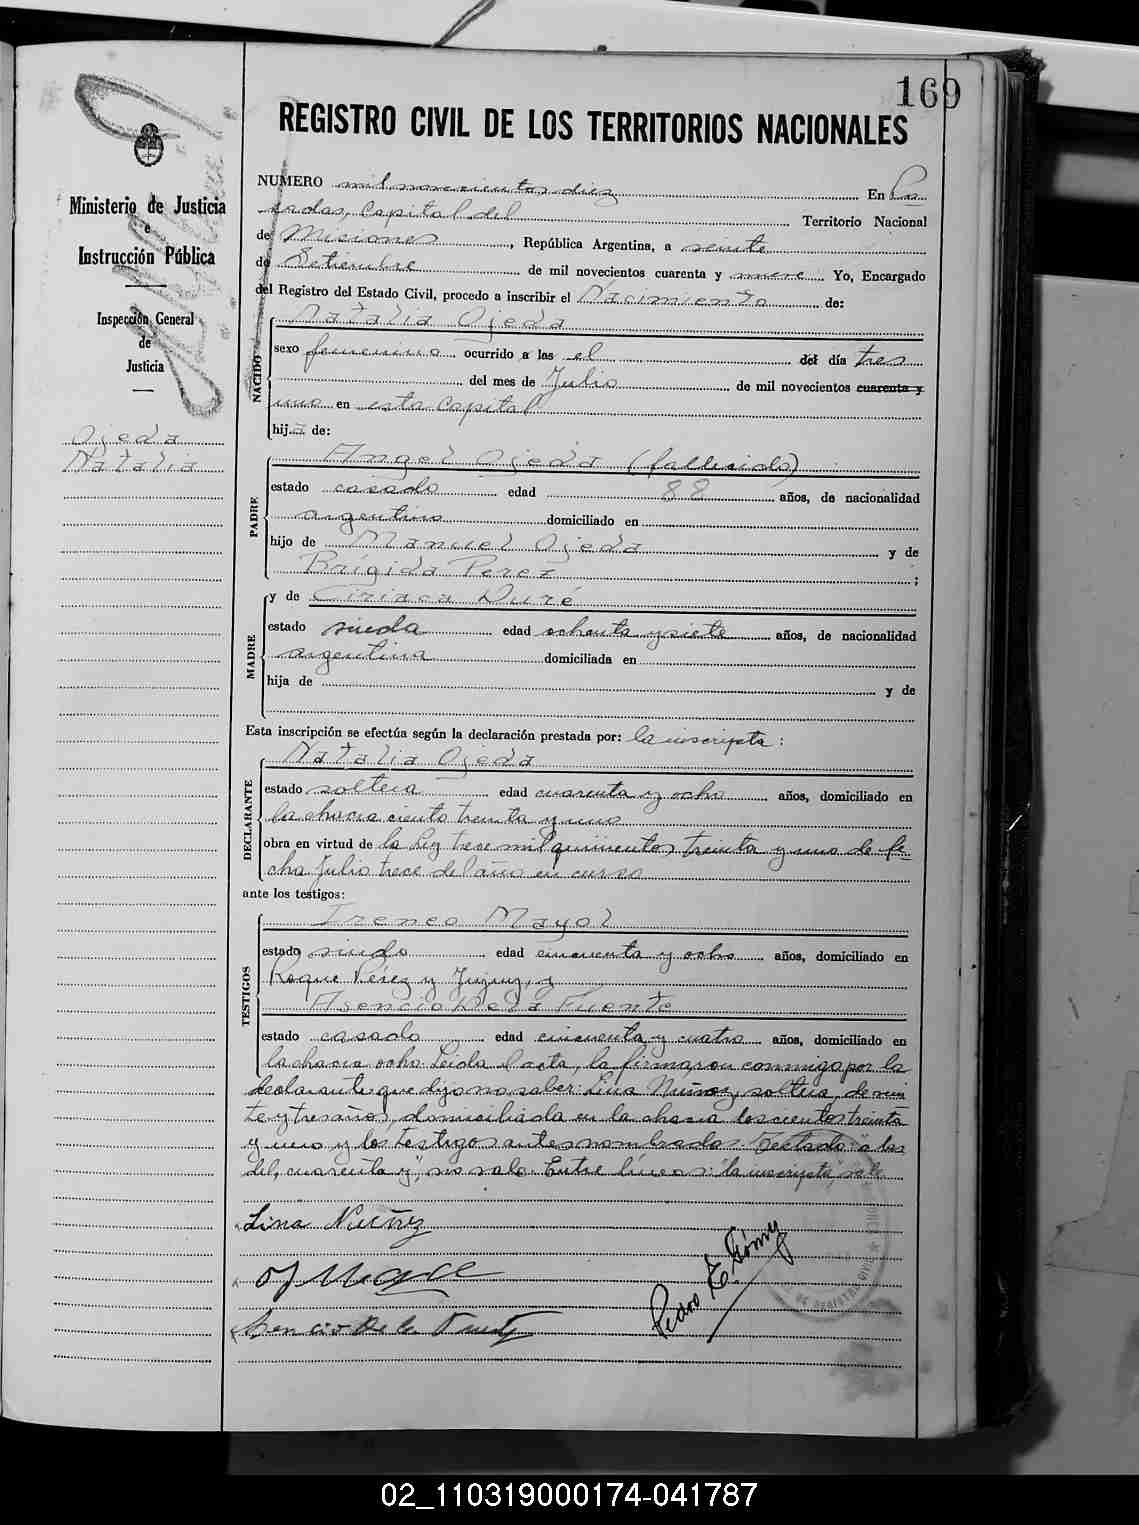 169
REGISTRO CIVIL DE LOS TERRITORIOS NACIONALES
Ministerio de Justicia
e
Instrucción Pública
Inspección General
de
Justicia
Ojeda
Natalia
NUMERO mil novecientos diez En Po
sadas, Capital del Territorio Nacional
de Misiones, República Argentina, a veinte
de Setiembre de mil novecientos cuarenta y nueve Yo, Encargado
del Registro del Estado Civil, procedo a inscribir el Nacimiento de:
NACIDO
Natalia Ojeda
sexo femenino ocurrido a las el del día tres
del mes de Julio de mil novecientos cuarenta y
uno en esta Capital
hija de:
PADRE
Angel Ojeda (fallecido)
estado casado edad 88 años, de nacionalidad
argentino domiciliado en
hijo de Manuel Ojeda y de
Brígida Perez ;
MADRE
y de Ciriaca Duré
estado viuda edad ochenta y siete años, de nacionalidad
argentina domiciliada en
hija de y de
Esta inscripción se efectúa según la declaración prestada por: la inscripta :
DECLARANTE
Natalia Ojeda
estado soltera edad cuarenta y ocho años, domiciliado en
la chacra ciento treinta y uno
obra en virtud de la Ley trece mil quinientos treinta y uno de fe-
cha Julio trece del año en curso
ante los testigos:
TESTIGOS
Ireneo Mayol
estado viudo edad cincuenta y ocho años, domiciliado en
Roque Pérez y Jujuy, y
Asencio De la Fuente
estado casado edad cincuenta y cuatro años, domiciliado en
la chacra ocho. Leida el acta, la firmaron conmigo por la
declarante que dijo no saber: Lina Nuñez, soltera, de vein
te y tres años, domiciliada en la chacra doscientos treinta
y uno y los testigos antes nombrados. Testado: "a las
del, cuarenta y", no vale. Entre líneas: "la inscripta" vale
Lina Nuñez
Asencio De la Fuente
Pedro E.
02_110319000174-041787